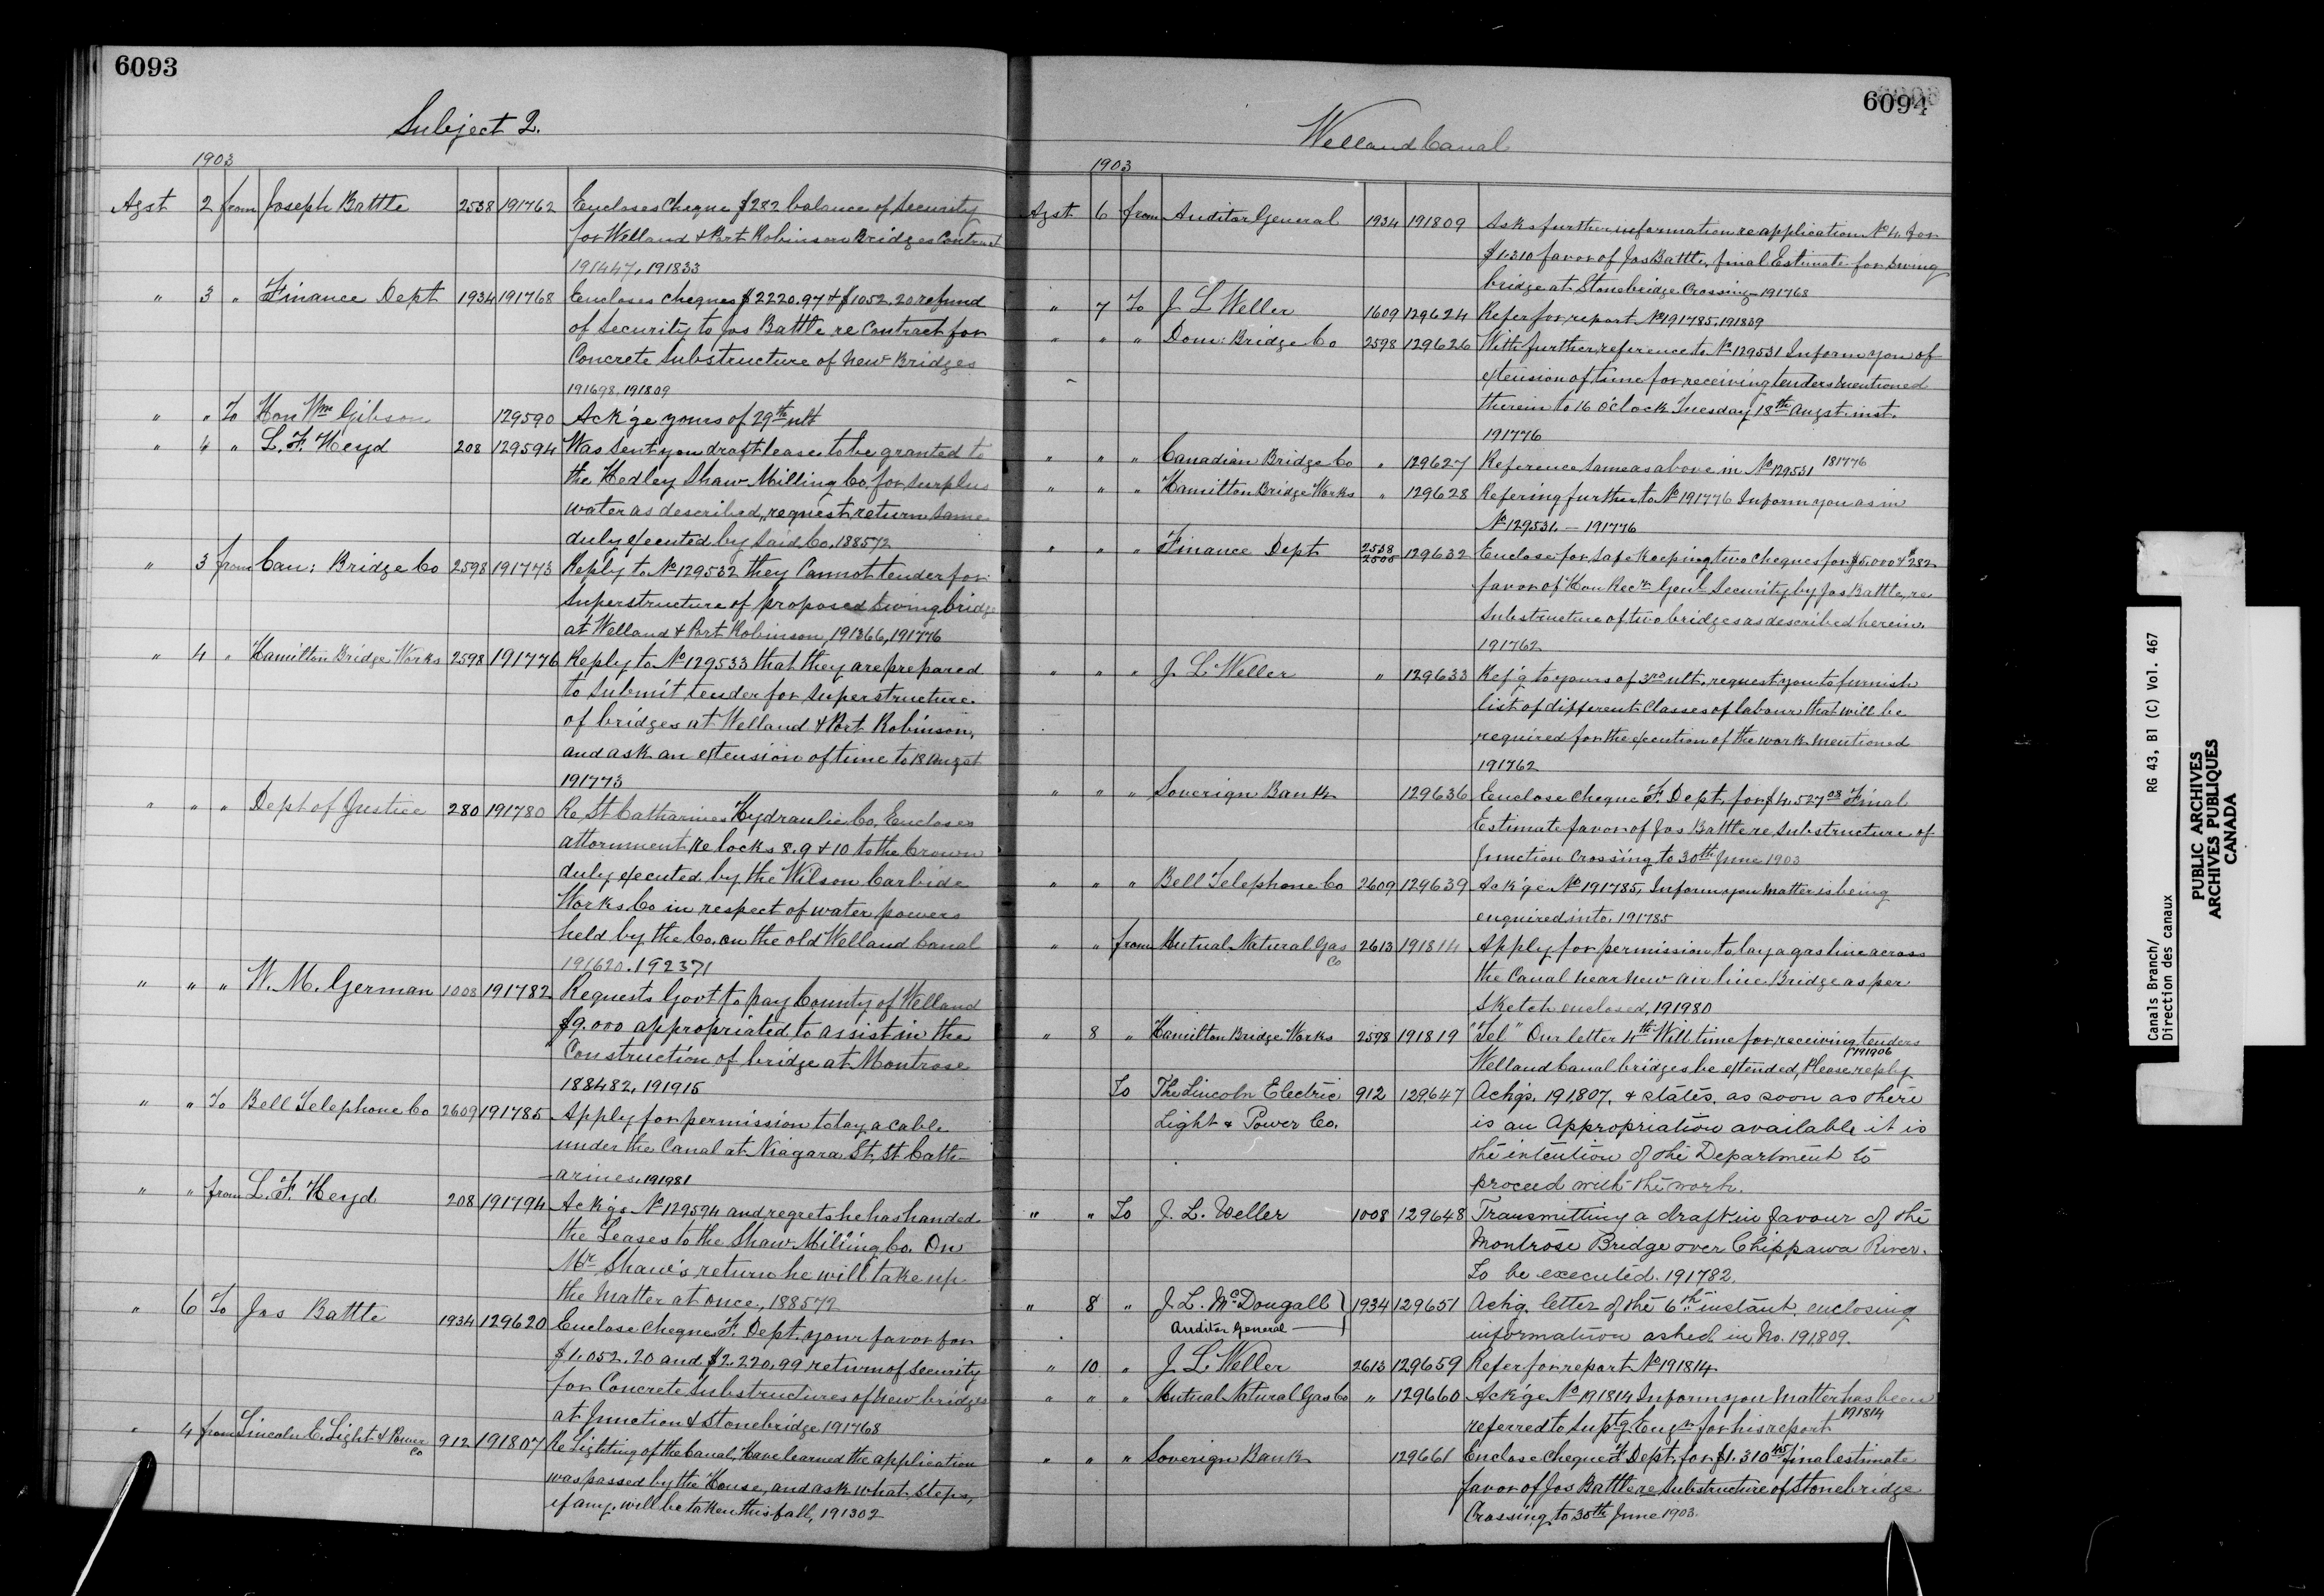 6093
Subject 2.
1903
Agst 2 from Joseph Battle 2538 191762 Encloses Cheque $282 balance of Security
for Welland & Port Robinson Bridges Contract
191447, 191833
" 3 " Finance Dept 1934 191768 Encloses cheques $2220.97 & $1052.20 refund
of Security to Jos Battle re Contract for
Concrete Substructure of New Bridges
191698, 191809
" " To Hon Wm Gibson 129590 Ack'ge yours of 29th ult
" 4 " L. F. Heyd 208 129594 Was sent you draft lease to be granted to
the Hedley Shaw Milling Co. for surplus
water as described, request return same
duly executed by said Co. 188572
" 3 from Can: Bridge Co 2598 191773 Reply to No 129532 they Cannot tender for
Superstructure of proposed Swing bridge
at Welland & Port Robinson, 191366, 191776
" 4 " Hamilton Bridge Works 2598 191776 Reply to No 129533 that they are prepared
to submit tender for superstructure
of bridges at Welland & Port Robinson,
and ask an extension of time to 18 Augst
191773
" " " Dept of Justice 280 191780 Re St Catharines Hydraulic Co. Encloses
attornment re locks 8.9 & 10 to the Crown
duly executed by the Wilson Carbide
Works Co in respect of water powers
held by the Co. on the old Welland Canal
191620. 192371
" " " W. M. German 1008 191782 Requests Govt to pay County of Welland
$9.000 appropriated to assist in the
Construction of bridge at Montrose
188482, 191915
" " To Bell Telephone Co 2609 191785 Apply for permission to lay a cable
under the Canal at Niagara St, St Cath-
arines, 191981
" " from L. F. Heyd 208 191794 Ack'ge No 129594 and regrets he has handed
the Leases to the Shaw Milling Co. On
Mr Shaw's return he will take up
the Matter at once, 188572
" 6 To Jos Battle 1934 129620 Enclose cheques F. Dept. your favor for
$1.052.20 and $2.220.99 return of Security
for Concrete Substructures of New bridges
at Junction & Stonebridge 191768
" 4 from Lincoln E. Light & Power Co 912 191807 Re Lighting of the Canal, Have learned the application
was passed by the House, and ask what steps,
if any will be taken this fall, 191302
6094
Welland Canal
1903
Agst 6 from Auditor General 1934 191809 Asks further information re application No 4 for
$1.310 favor of Jos Battle, final Estimate for Swing
bridge at Stonebridge Crossing 191768
" 7 To J L Weller 1609 129624 Refer for report No 191785, 191839
" " " Dom: Bridge Co 2598 129626 With further reference to No 129531 Inform you of
extension of time for receiving tenders mentioned
therein to 16 o'clock Tuesday 18th Augst inst.
191776
" " " Canadian Bridge Co " 129627 Reference same as above in No 129531 181776
" " " Hamilton Bridge Works " 129628 Refering further to No 191776 Inform you as in
No 129531. — 191776
" " " Finance Dept 2538 2505 129632 Enclose for safe Keeping two Cheques for $5.000 & $282
favor of Hon Recr Genl Security by Jos Battle, re
Substructure of two bridges as described herein
191762
" " " J. L. Weller " 129633 Ref'g to yours of 3rd ult. request you to furnish
list of different Classes of labour that will be
required for the execution of the work mentioned
191762
" " " Soverign Bank 129636 Enclose cheque F. Dept, for $4.527.08 Final
Estimate favor of Jos Battle re Substructure of
Junction Crossing to 30th June 1903
" " " Bell Telephone Co 2609 129639 Ack'ge No 191785, Inform you matter is being
enquired into. 191785
" " from Mutual Natural Gas Co 2613 191814 Apply for permission to lay a gas line across
the Canal near new air line Bridge as per
Sketch enclosed, 191980
" 8 " Hamilton Bridge Works 2598 191819 "Tel" Our letter 4th Will time for receiving tenders
Welland Canal bridges be extended, Please reply 191906
To The Lincoln Electric 912 129647 Ackgs. 191,807. & states, as soon as there
Light & Power Co. is an Appropriation available it is
the intention of the Department to
proceed with the work.
" " To J. L. Weller 1008 129648 Transmitting a draft in favour of the
Montrose Bridge over Chippawa River.
To be executed. 191782.
" 8 " J. L. McDougall 1934 129651 Ackg. letter of the 6th instant. enclosing
Auditor General information asked in No. 191,809.
" 10 " J L Weller 2613 129659 Refer for report No 191814
" " " Mutual Natural Gas Co " 129660 Ack'ge No 191814 Inform you matter has been
referred to Suptg Engr for his report 191814
" " " Soverign Bank 129661 Enclose cheque F Dept, for $1.310.45 final estimate
favor of Jos Battle re Substructure of Stonebridge
Crossing to 30th June 1903.
Canals Branch/ RG 43, B1 (C) Vol. 467
Direction des canaux
PUBLIC ARCHIVES
ARCHIVES PUBLIQUES
CANADA